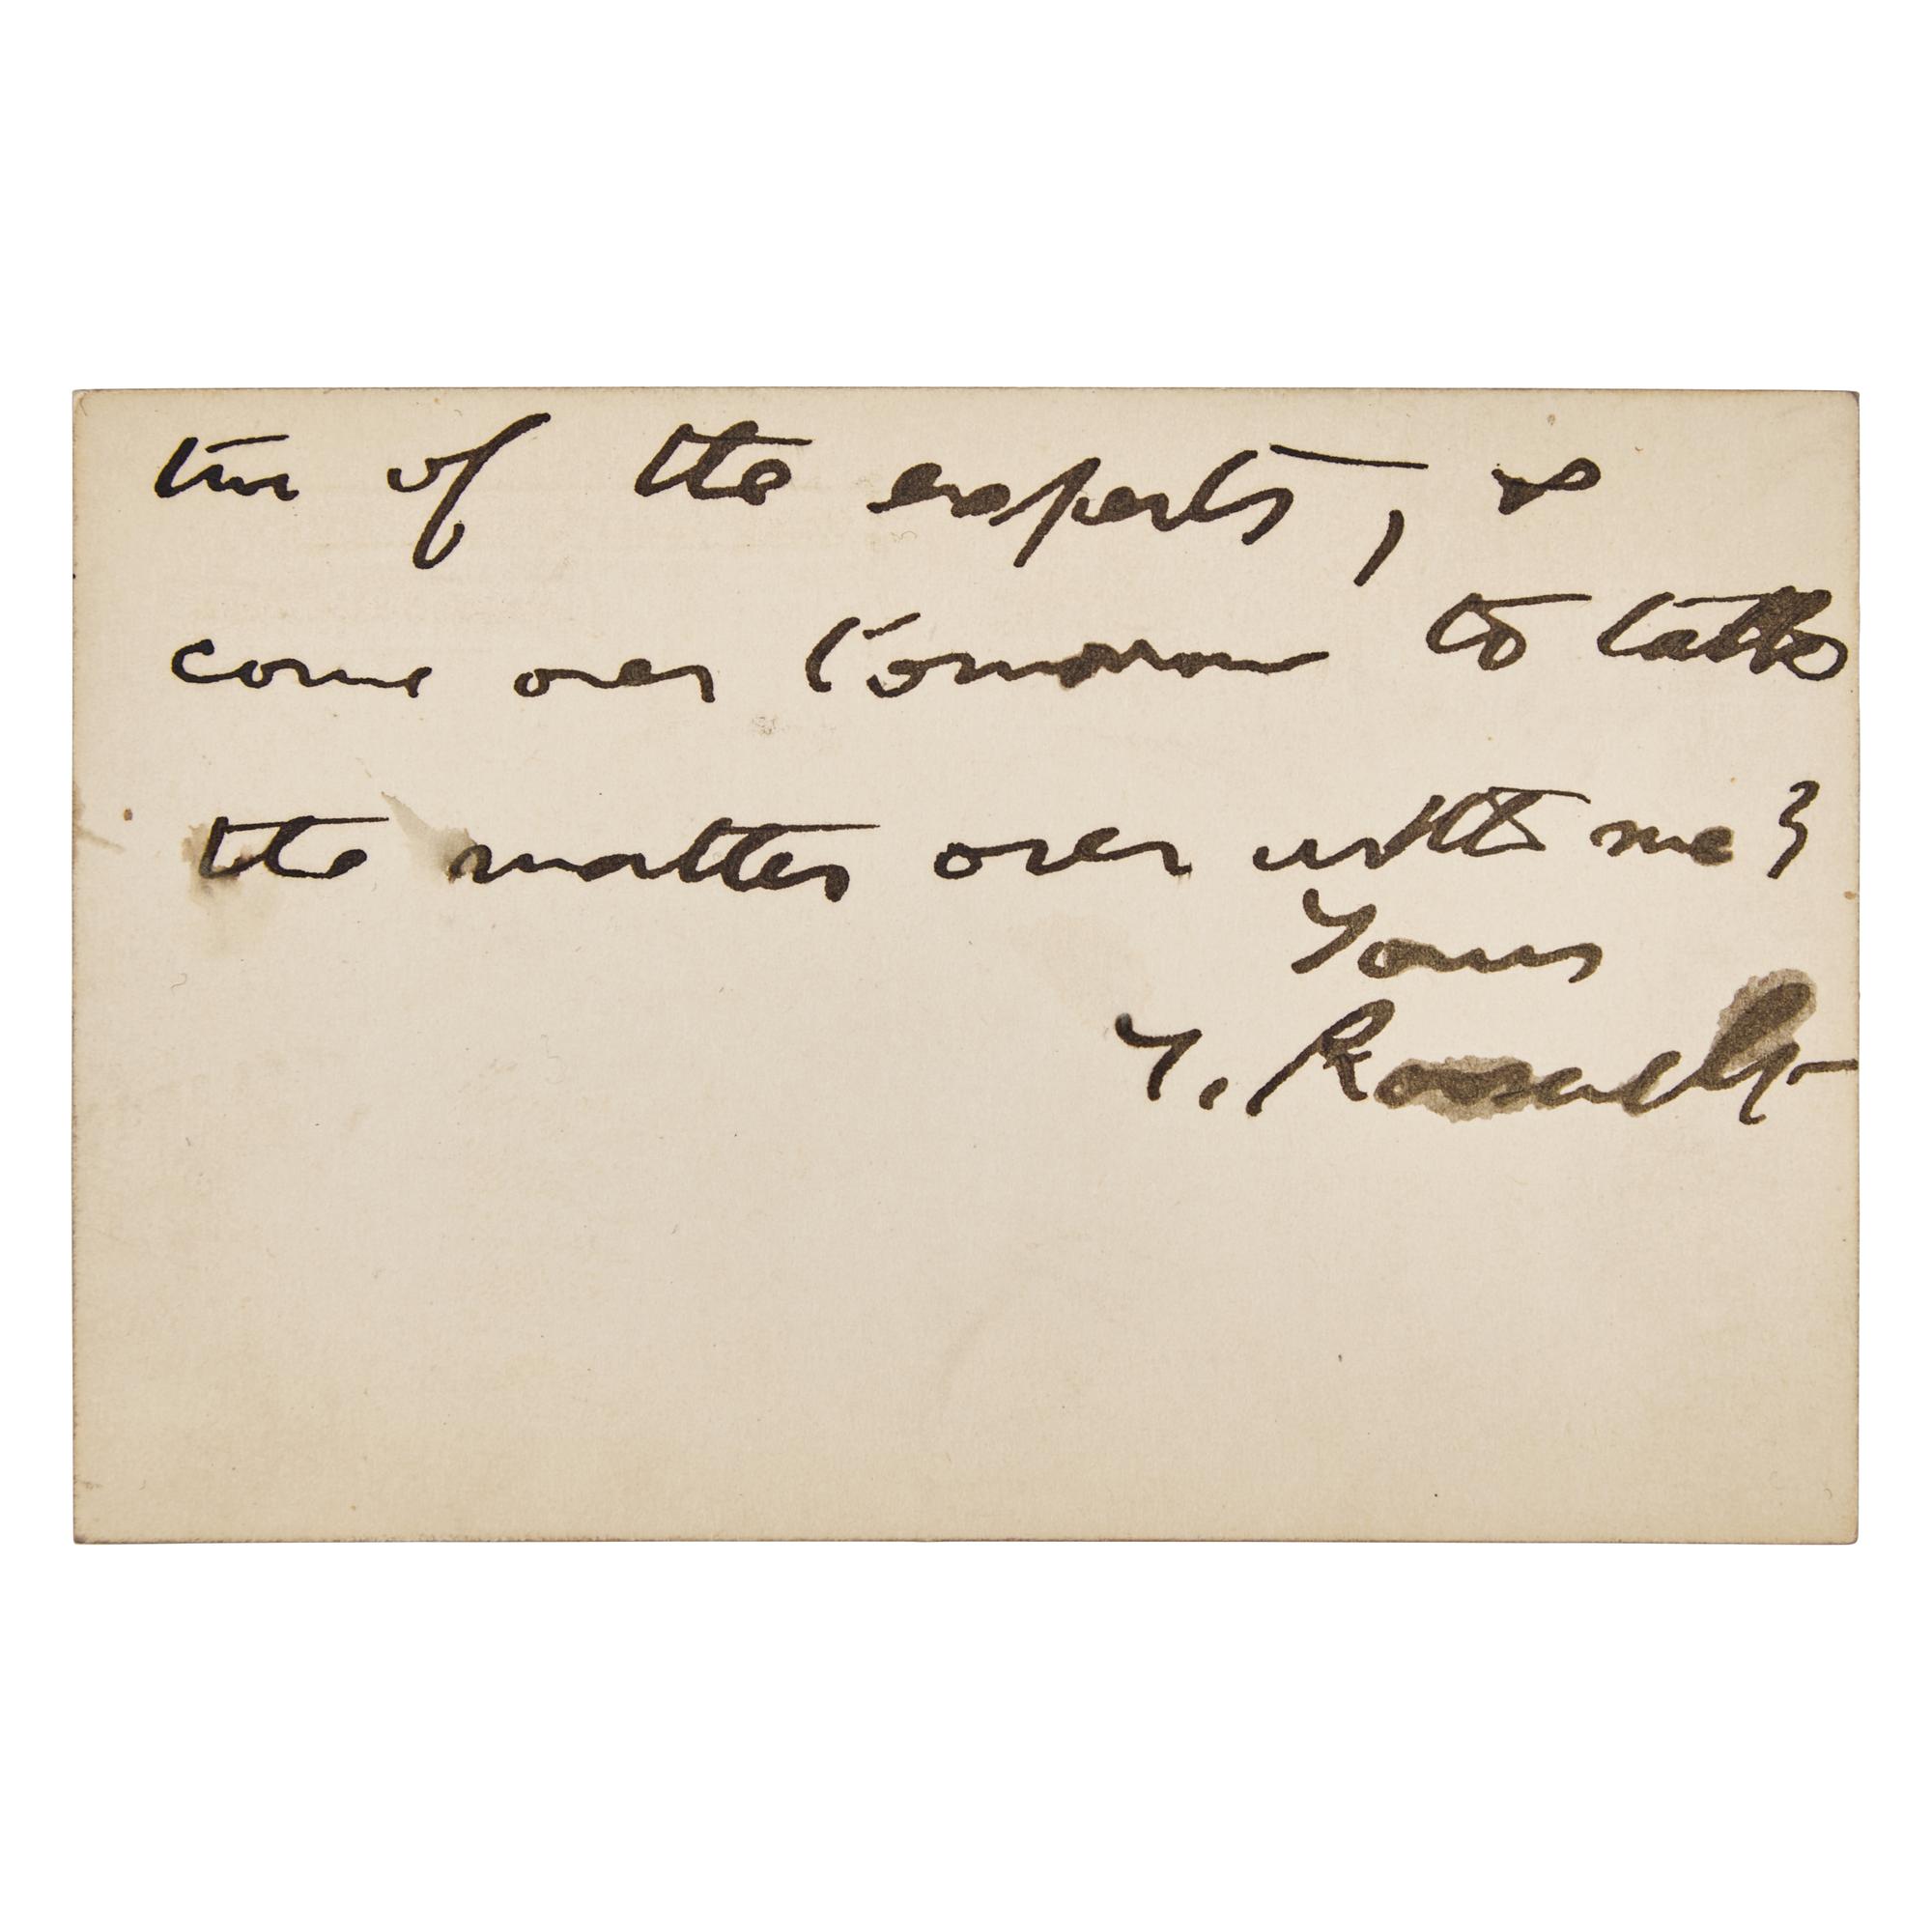 two of the experts, &
come over tomorrow to talk
the matter over with me?
Yours
T. Roosevelt